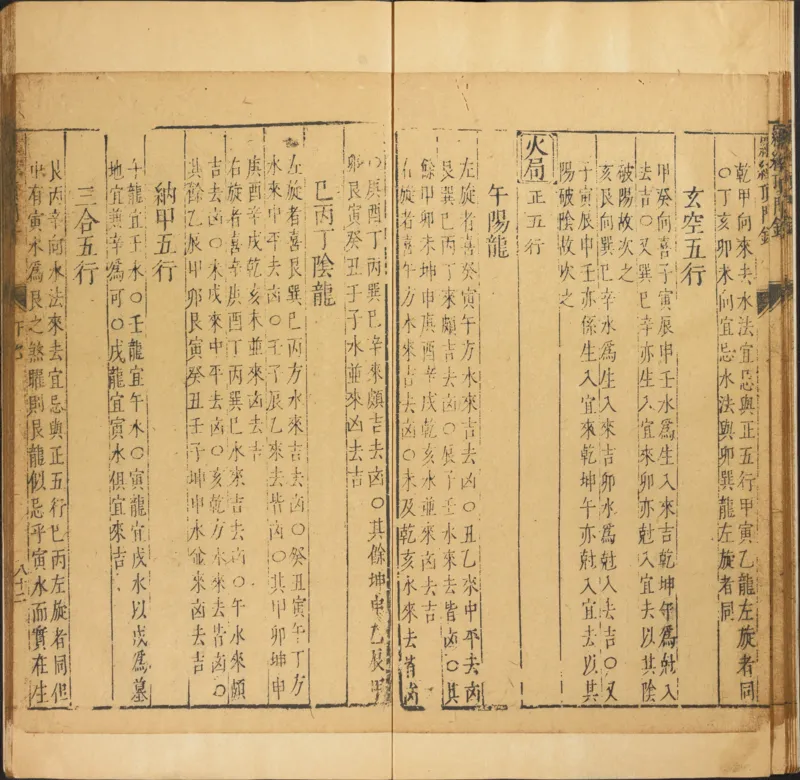 乾甲向來去水法宜忌與正五行甲寅乙龍左旋者同
○丁亥卯未向宜忌水法與卯巽龍左旋者同
玄空五行
甲癸向喜子寅辰申壬水為生入來吉乾坤午為尅入
去吉○又巽巳辛亦生入宜來卯亦尅入宜去以其陰
破陽故次之
亥艮向巽巳辛水為生入來吉卯水為尅入去吉○又
子寅辰申壬亦係生入宜來乾坤午亦尅入宜去以其
陽破陰故次之
火局 正五行
午陽龍
左旋者喜癸寅午方水來吉去凶○丑乙來中平去凶
艮巽巳丙丁來頗吉去凶○辰子壬水來去皆凶○其
餘甲卯未坤申庚酉辛戌乾亥水並來凶去吉
右旋者喜午方水來吉去凶○未及乾亥水來去皆凶
○庚酉丁丙巽巳辛來頗吉去凶○其餘坤申乙辰甲
卯艮寅癸丑壬子水並來凶去吉
巳丙丁陰龍
左旋者喜艮巽巳丙方水來吉去凶○癸丑寅午丁方
水來中平去凶○壬子辰乙來去皆凶○其甲卯坤申
庚酉辛戌乾亥未並來凶去吉
右旋者喜辛庚酉丁丙巽巳水來吉去凶○午水來頗
吉去凶○未戌來中平去凶○亥乾方水來去皆凶○
其餘乙辰甲卯艮寅癸丑壬子坤申水並來凶去吉
納甲五行
午龍宜壬水○壬龍宜午水○寅龍宜戌水以戌為墓
地宜兼辛為可○戌龍宜寅水俱宜來吉
三合五行
艮丙辛向水法來去宜忌與正五行巳丙左旋者同但
中有寅水為艮之煞曜則艮龍似忌乎寅水而實在生
八十二